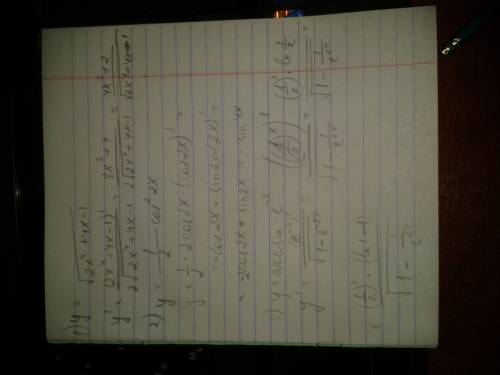 1) y = √(2x⁴ + 4x - 1)
y' = (2x⁴ + 4x - 1)' / 2√(2x⁴ + 4x - 1) = 8x³ + 4 / 2√(2x⁴ + 4x - 1) = 4x³ + 2 / √(2x⁴ + 4x - 1)
2) y = 1/2 cos² 2x
y' = 1/2 · 2cos2x · (cos2x)' =
= -cos2x * sin2x · (2x)' =
= -2cos2x * sin2x = - sin4x
3) y = arcsin e⁻ˣ
y' = (e⁻ˣ)' / √(1 - e⁻²ˣ) = ((1/e)ˣ)' / √(1 - 1/e²ˣ) = (1/e)ˣ · ln 1/e / √(1 - 1/e²ˣ) =
= (1/e)ˣ · (ln 1 - 1) / √(1 - 1/e²ˣ)